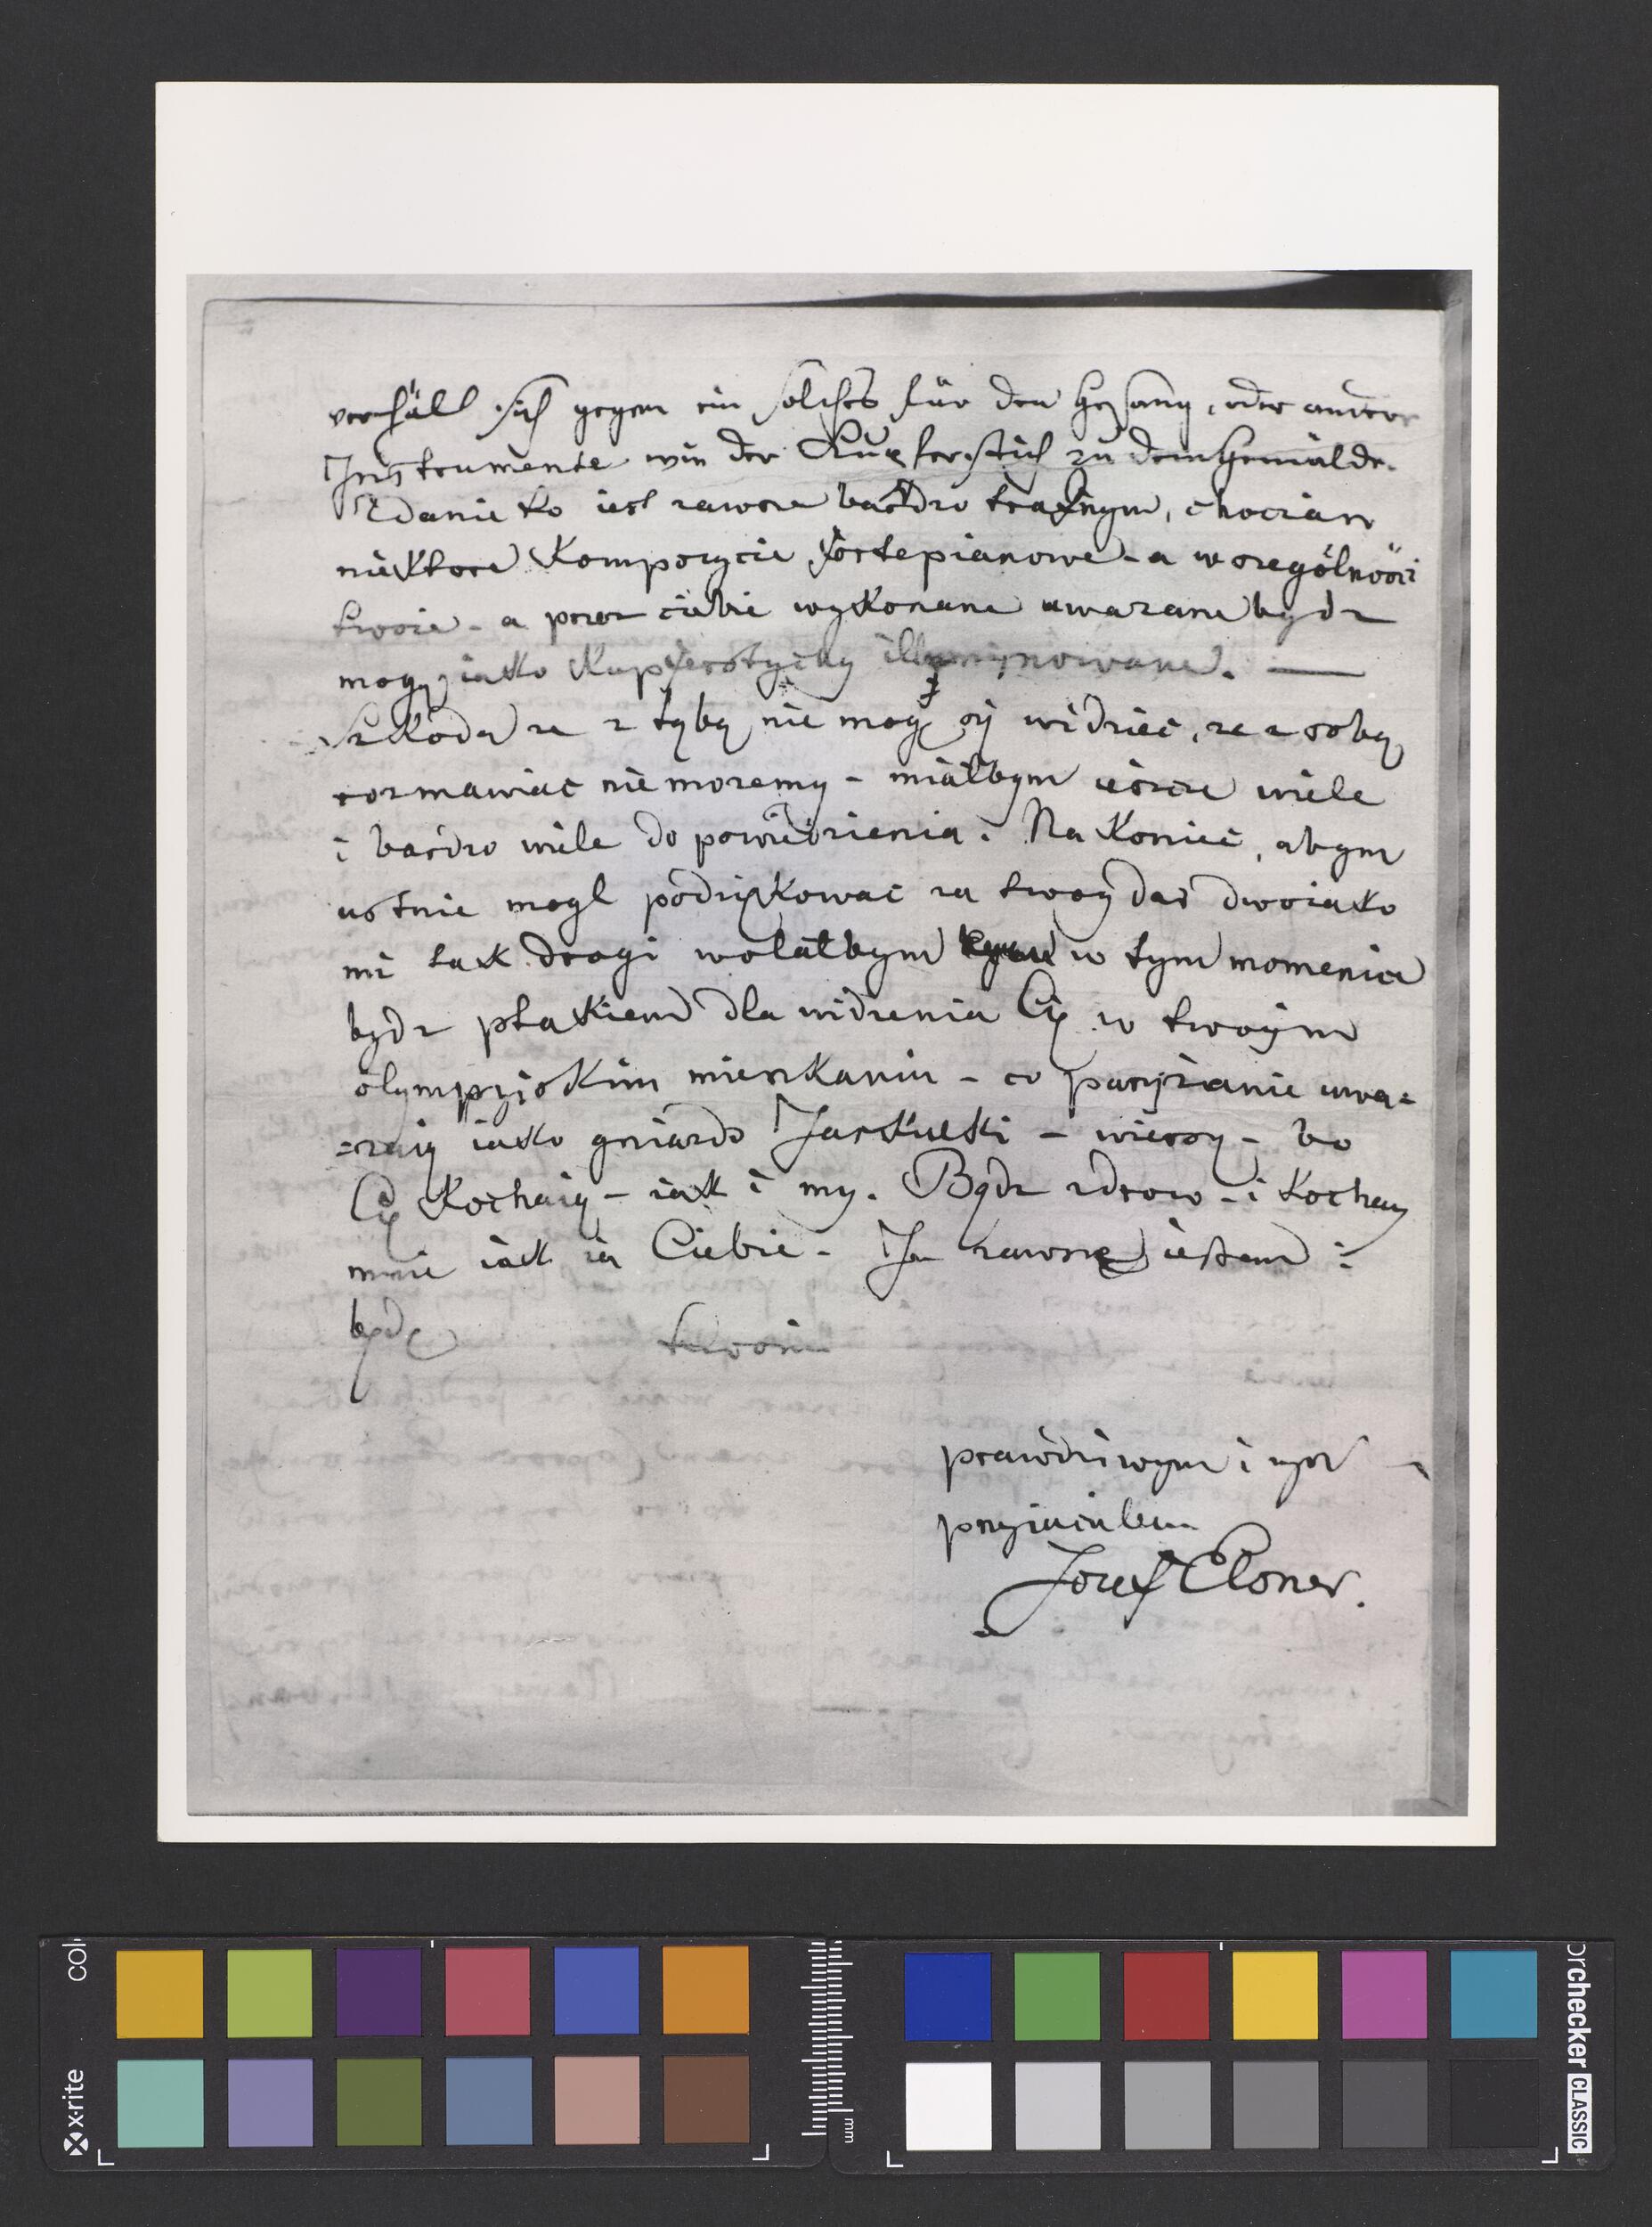 verhält sich gegen ein solches für den Gesang, oder andere
Instrumente wie der Kupferstich zu dem Gemälde.
Zdanie to iest zawsze bardzo trafnym, chociasz
niektore Kompozycie fortepianowe - a w szczególności
twoie - a przez ciebie wykonane uwazane bydz
mogą iako Kupfersztychy illuminowane. —
Szkoda ze z tybą nie mogę się widzieć, ze z sobą
rozmawiać nie mozemy - miałbym ieszcze wiele
i bardzo wiele do powiedzienia. Na Koniec, abym
ustnie mogl podziękować za twoy dar dwoiako
mi tak drogi wolałbym w tym momencie
bydz ptakiem dla widzenia Cię w twoiym
olympijskim mieszkaniu - co paryżanie uwa=
=zaią iako gniazdo Jaskulki - wierzę - bo
Cię Kochaią - iak i my. Bądz zdrow - i Kochay
mnie iak ia Ciebie - Ja zawsze iestem i
będę twoim
prawdziwym i
przyiacielem
Jozef Elsner.
x-rite
colorchecker CLASSIC
mm